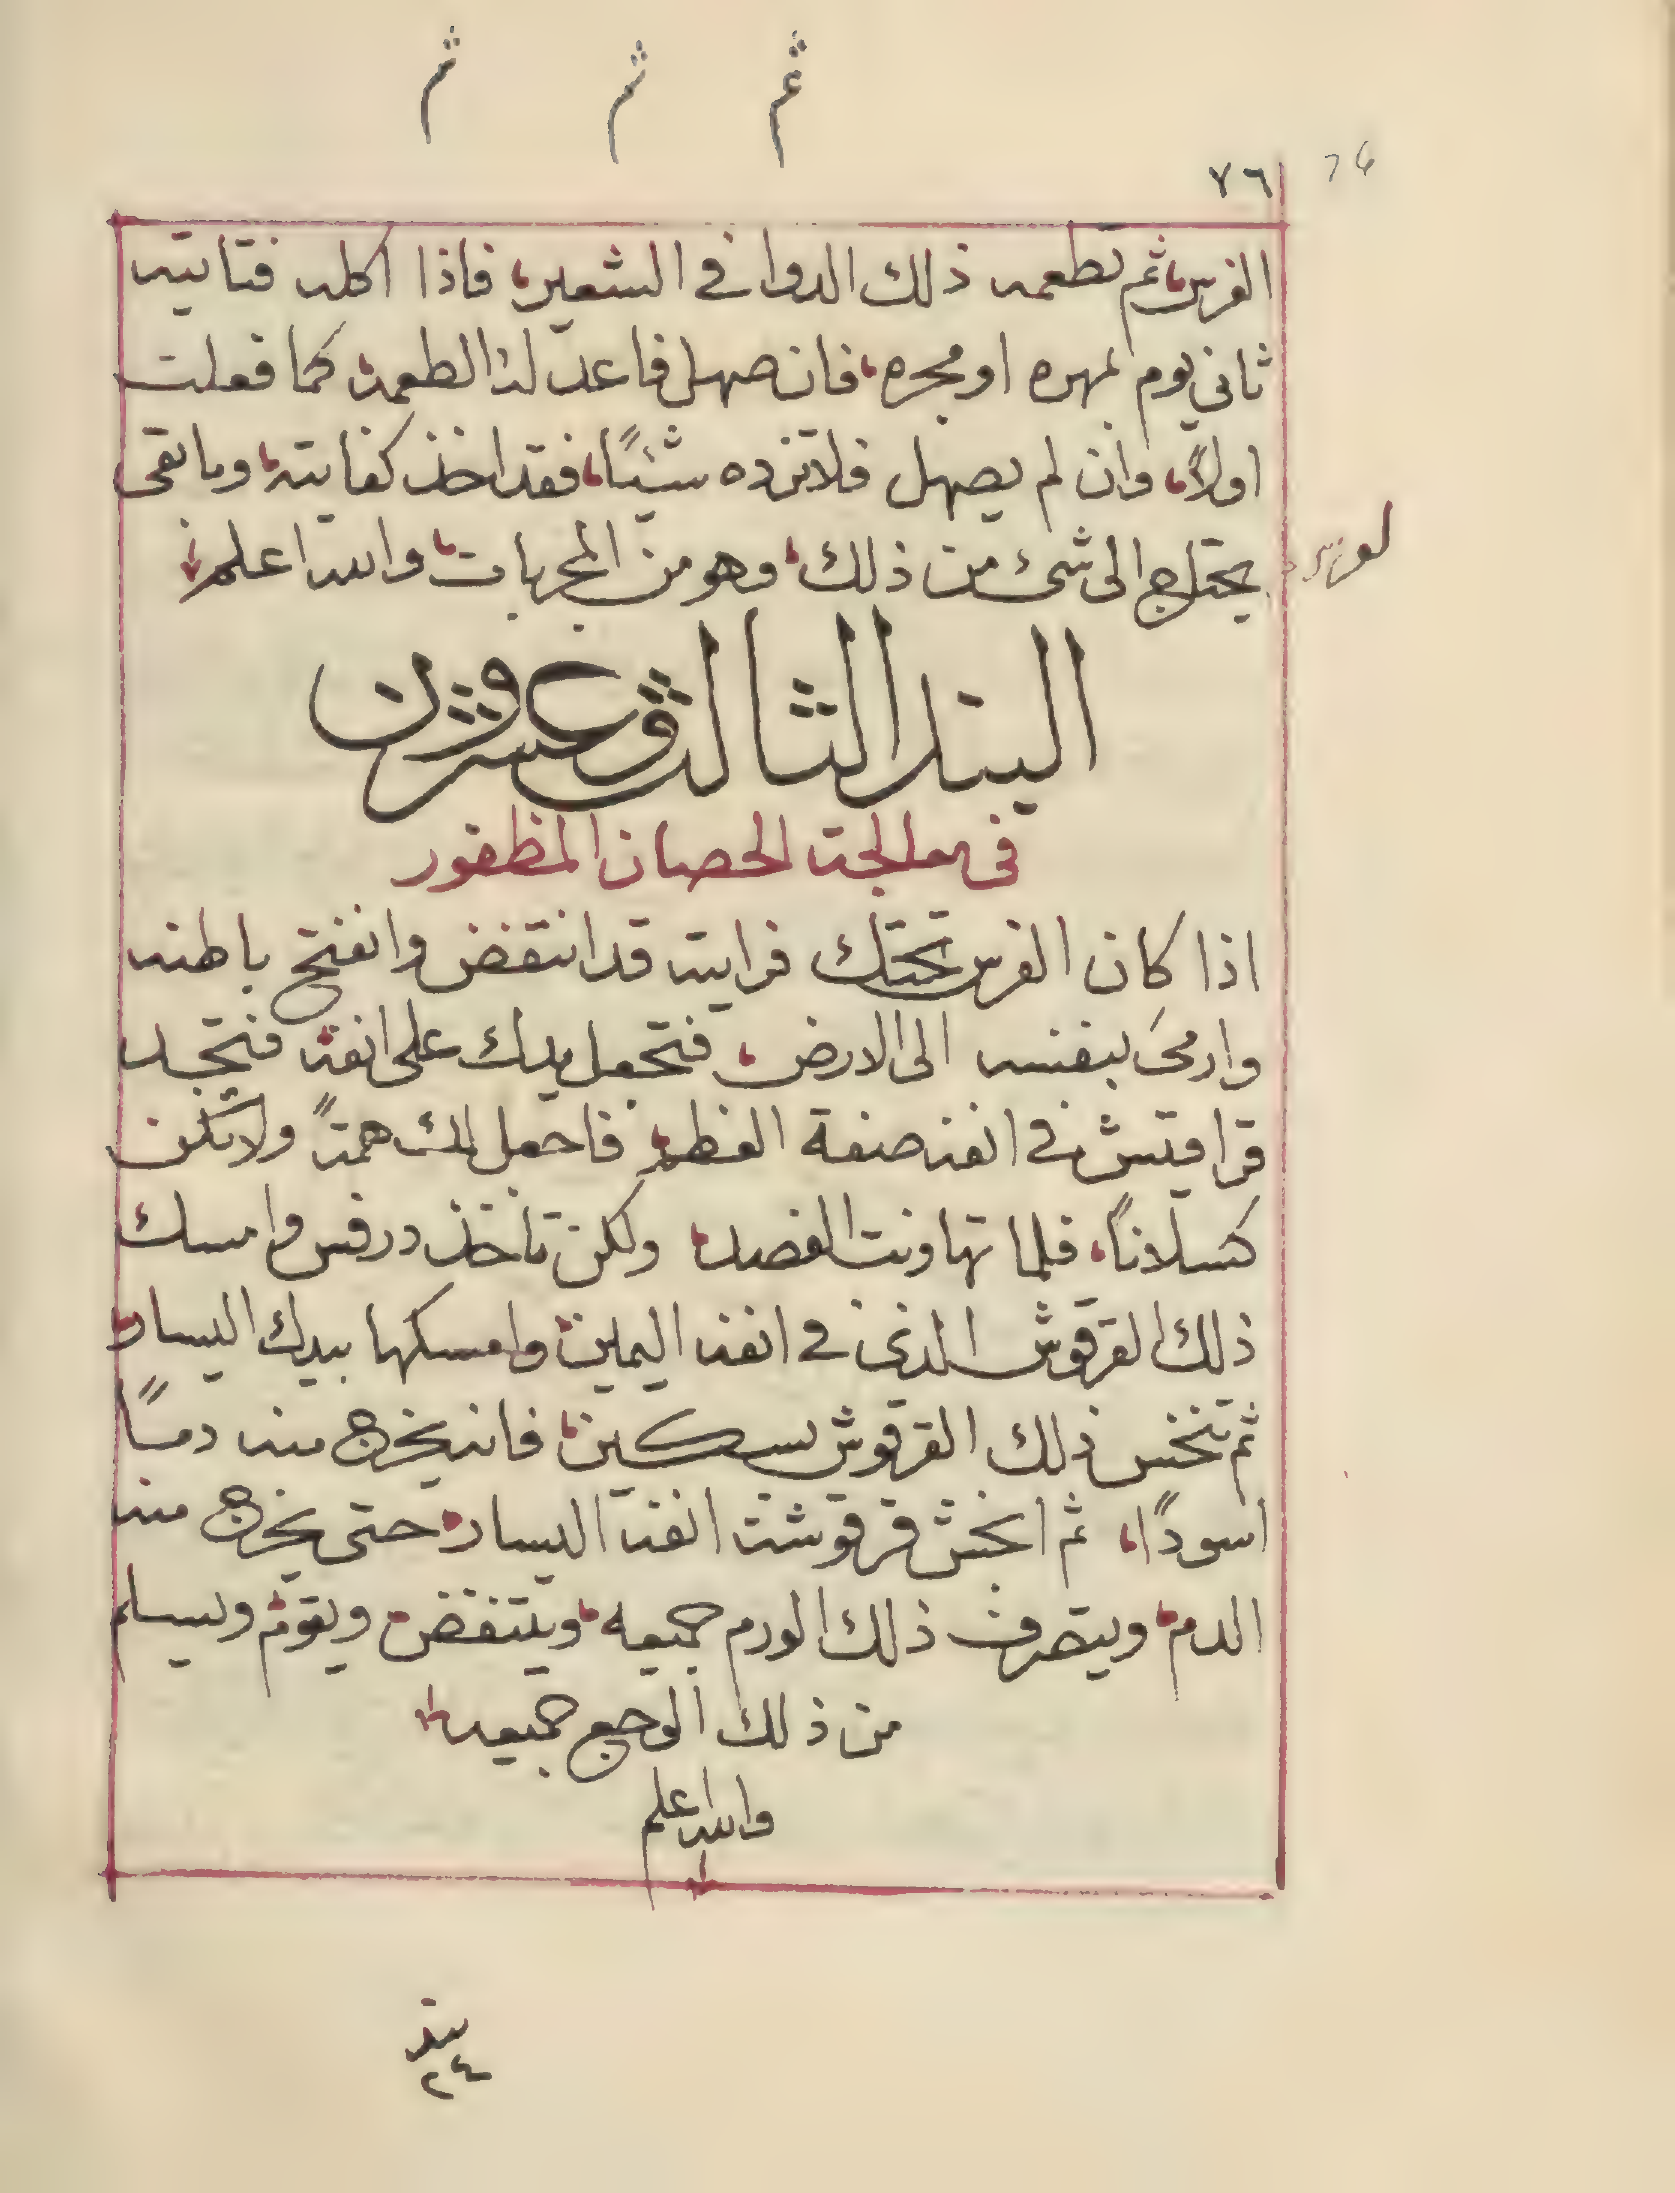 ثم ثم ثم
٧٦ 76
الفرس، ثم تطعمه ذلك الدوا في الشعير، فاذا اكله فتاتيه
ثاني يوم بمهره او محجره، فان صهل فاعد له الطعمه كما فعلت
اولاً، وان لم يصهل فلا تزده شيئًا، فقد اخذ كفايته، وما بقى
يحتاج الى شئ من ذلك، وهو من المجربات، والله اعلم
البند الثالث وعشرون
في معالجة الحصان المظفور
اذا كان الفرس تحتك فرايته قد انتفض وانفتح باطنه
وارمى بنفسه الى الارض، فتجعل يدك على انفه فتجد
قراقيش في انفه صفة العظم، فاجعل لك همةً ولا تكن
كسلانًا، فلما تهاونت الفصد، ولكن تاخذ درفس وامسك
ذلك القرقوش الذي في انفه اليمين، وامسكها بيدك اليسار،
ثم تنخس ذلك القرقوش بسكين، فانه يخرج منه دمًا
اسودًا، ثم انخش قرقوشة انفه اليسار، حتى يخرج منه
الدم، ويتصرف ذلك الورم جميعه، وينتفض، ويقوم ويسلم
من ذلك الوجع جميعه
والله اعلم
بند
٢٤